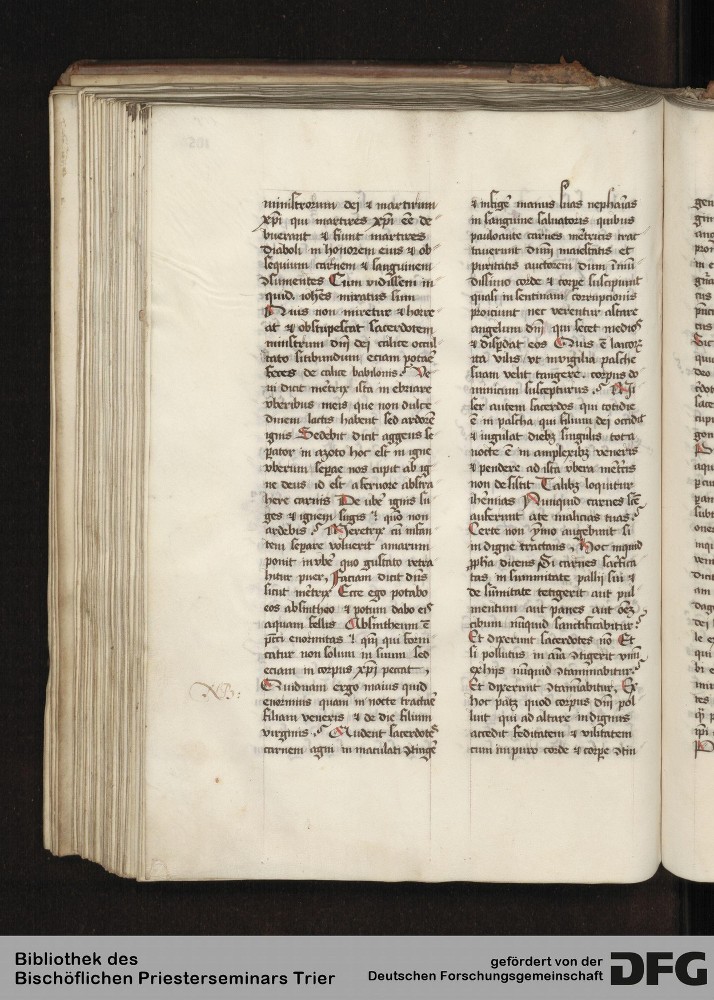 ministrorum dej & martirum
xp̄i qui martires xp̄i eē de
buerant & fiunt martires
diaboli in honorem eius & ob
sequium carnem & sanguinem
ꝯsumentes Cum vidissem in
quid. ioh̄es miratus sum
Quis non miretur & horre
at & obstupescat sacerdotem
ministrum dn̄j dej calice occul
tato sitibundum eciam potare
feces de calice babilonis. Ve
ni dicit me͛trix ista in ebriare
vberibus meis que non dulce
dinem lactis habent sed ardorē
ignis Sedebit dicit aggeus se
pator in azoto hoc est in igne
vberum sepae nos cupit ab ig
ne deus id est a feruore abstra
here carnis De vbe͛ ignis su
ges & ignem sugis quō non
ardebis. Meretrix cū infan
tem separe voluerit amarum
ponit in vbe͛ quo gustato retra
hitur puer, Faciam dicit dn̄s
sicut me͛trix Ecce ego potabo
eos absintheo & potum dabo eis
aquam fellis Absintheum ē
pc̄ti enormitas qm̄ qui forni
catur non solum in suum sed
eciam in corpus xp̄i peccat,
Quidnam ergo maius quid
enormius quam in nocte tractare
filiam veneris & de die filium
virginis. Audent sacerdotes
carnem agni in maculati ꝯtinge͛
& infige͛ manus suas nepharias
in sanguine saluatoris quibus
paulo ante carnes me͛tricis trac
tauerunt dum maiestatis et
puritatis auctorem dum īmū
dissimo corde & corpe suscipiunt
quasi in sentinam corrupcionis
proiciunt nec verentur altare
angelum dn̄j qui secet medios
& dispdat eos Quis ē laicorum
ita vilis vt in vigilia pasche
suam velit tangere. corpus do
minicum suscepturus. Mi
ser autem sacerdos qui cotidie
ē in pascha qui filium dej occidit
& iugulat diebꝫ singulis tota
nocte ē in amplexibꝫ veneris
& pendere ad ista vbera me͛tricis
non desistit Talibꝫ loquitur
ih̄emias Nunquid carnes sc̄e
auferunt a te malicias tuas.
Certe non ymo augebunt si
indigne tractans, Hoc inquid
ꝓpha dicens Si carnes sac̄fica
tas in summitate pallij sui &
de sūmitate tetigerit aut pul
mentum aut panes aut oēꝫ
cibum nūquid sanctificabitur
Et dixerunt sacerdotes nō Et
si pollutus in aīa ꝯtigerit vnū
ex hijs nūquid ꝯtaminabitur.
Et dixerunt ꝯtamīabitur, Ex
hoc patꝫ quod corpus dn̄j pol
luit qui ad altare indignus
accedit feditatem & vilitatem
cum impuro corde & corpe ꝯtin
Bibliothek des
Bischöflichen Priesterseminars Trier
gefördert von der
Deutschen Forschungsgemeinschaft
DFG